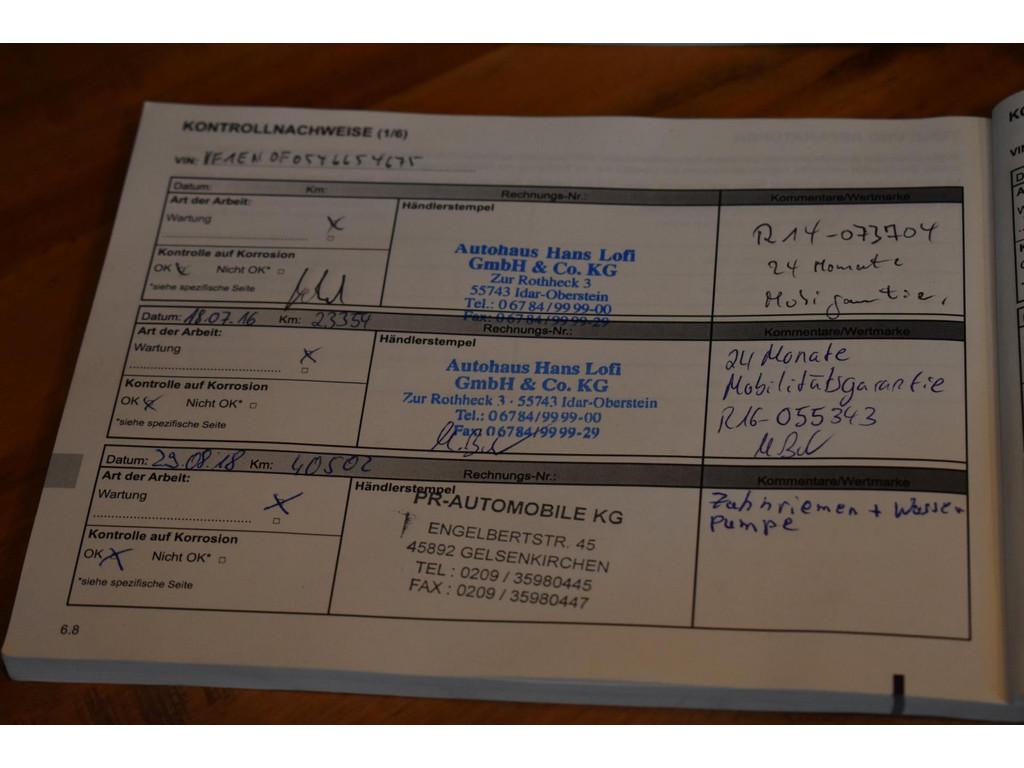 KONTROLLNACHWEISE (1/6)
VIN: VF1EN0F0546654675
Datum: Km: Rechnungs-Nr.: Kommentare/Wertmarke
Art der Arbeit: Händlerstempel
Wartung x
R14-073704
Autohaus Hans Lofi
GmbH & Co. KG
Zur Rothheck 3
55743 Idar-Oberstein
Tel.: 0 67 84 / 99 99-00
Fax: 0 67 84 / 99 99-29
24 Monate
Mobigarantie,
Kontrolle auf Korrosion
OK Nicht OK*
*siehe spezifische Seite
Datum: 18.07.16 Km: 23354 Rechnungs-Nr.: Kommentare/Wertmarke
Art der Arbeit: Händlerstempel
Wartung x
Autohaus Hans Lofi
GmbH & Co. KG
Zur Rothheck 3 · 55743 Idar-Oberstein
Tel.: 0 67 84 / 99 99-00
Fax: 0 67 84 / 99 99-29
24 Monate
Mobilitätsgarantie
R16-055343
Kontrolle auf Korrosion
OK x Nicht OK*
*siehe spezifische Seite
Datum: 29.08.18 Km: 40502 Rechnungs-Nr.: Kommentare/Wertmarke
Art der Arbeit: Händlerstempel
Wartung x
PR-AUTOMOBILE KG
ENGELBERTSTR. 45
45892 GELSENKIRCHEN
TEL : 0209 / 35980445
FAX : 0209 / 35980447
Zahnriemen + Wasser
pumpe
Kontrolle auf Korrosion
OK x Nicht OK*
*siehe spezifische Seite
6.8